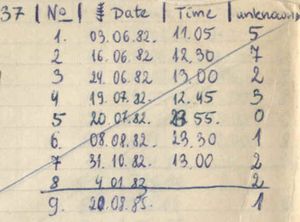 37 | № | Date | Time | unknown
1. 03.06.82. 11.05 5
2 16.06.82. 12.30 7
3 24.06.82 13.00 2
4 19.07.82. 12.45 3
5 20.07.82. 23 55. 0
6. 08.08.82. 23.30 1
7 31.10.82. 13.00 2
8 4.01.83 2
9. 20.08.85. 1